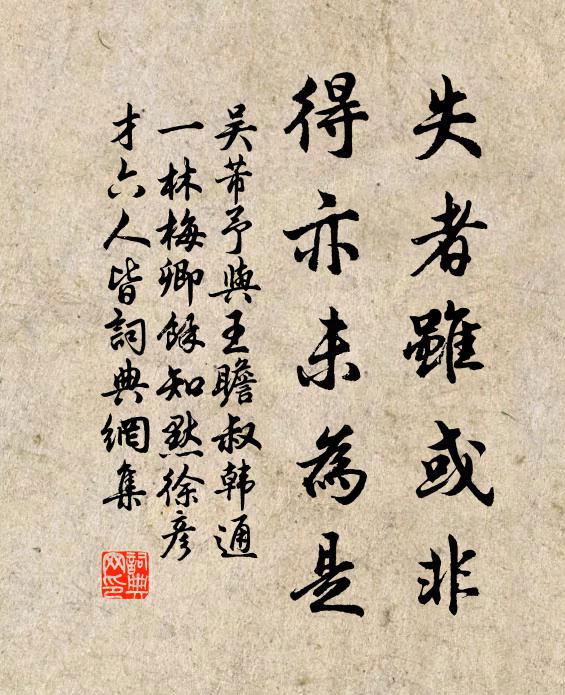 失者雖或非
得亦未為是
吳芾予與王瞻叔韩通
一林梅卿餘知默徐彥
才六人皆詞典網集
詞典網印